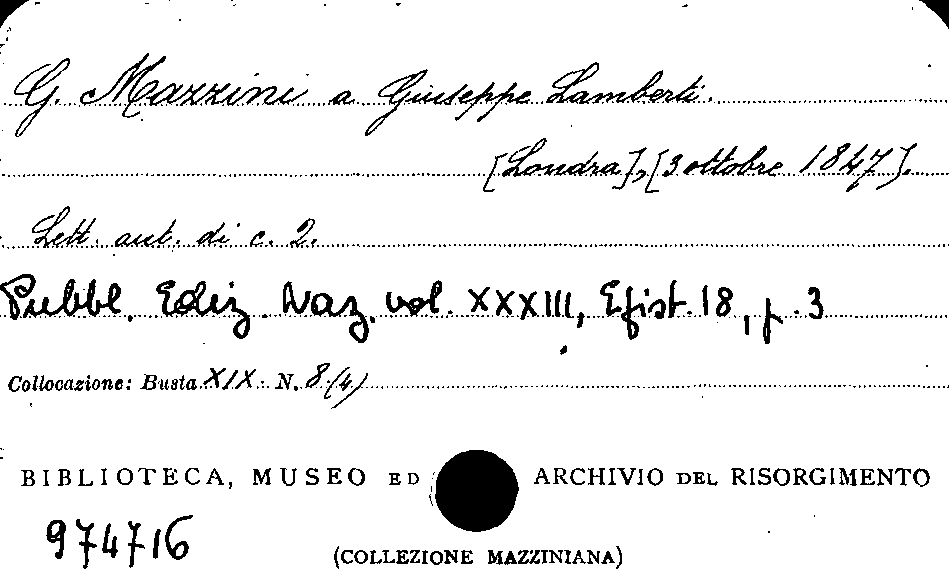 G. Mazzini a Giuseppe Lamberti.
[Londra], [3 ottobre 1847].
Lett. aut. di c. 2.
Pubbl. Ediz. Naz. vol. XXXIII, Epist. 18, p. 3
Collocazione: Busta XIX. N. 8 (4)
BIBLIOTECA, MUSEO ED ARCHIVIO DEL RISORGIMENTO
974716
(COLLEZIONE MAZZINIANA)